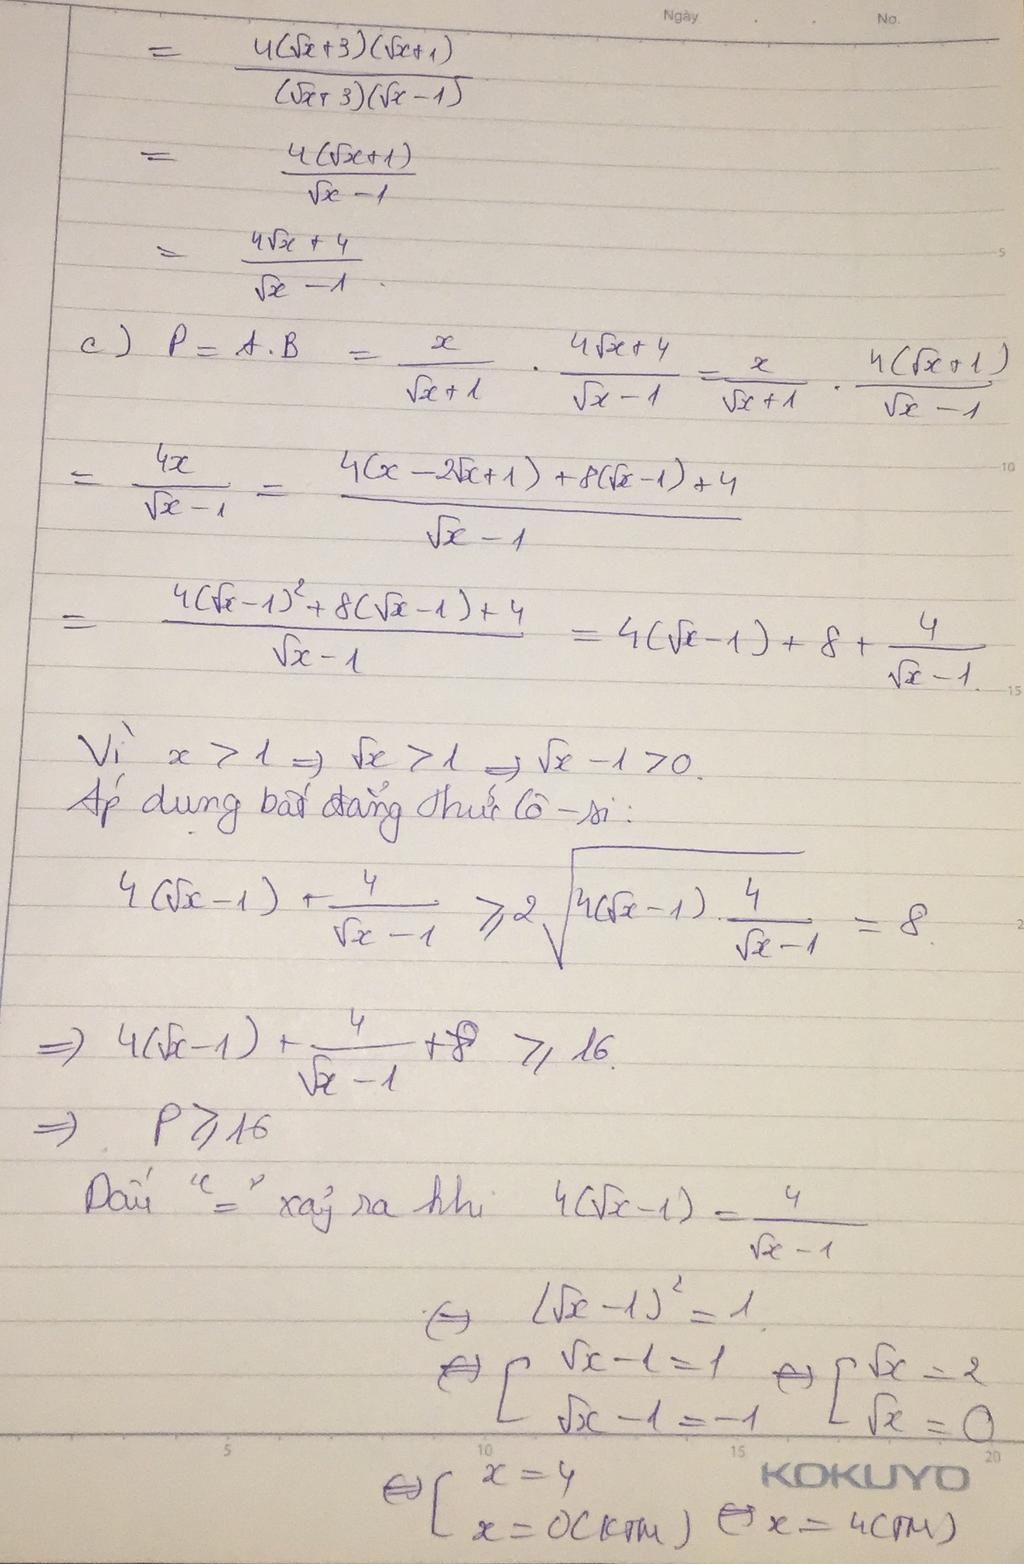 Ngày . . No.
= \frac{4(√x+3)(√x+1)}{(√x+3)(√x-1)}
= \frac{4(√x+1)}{√x-1}
= \frac{4√x+4}{√x-1}.
5
c) P = A.B = \frac{x}{√x+1} . \frac{4√x+4}{√x-1} = \frac{x}{√x+1} . \frac{4(√x+1)}{√x-1}
10
= \frac{4x}{√x-1} = \frac{4(x-2√x+1)+8(√x-1)+4}{√x-1}
= \frac{4(√x-1)²+8(√x-1)+4}{√x-1} = 4(√x-1)+8+\frac{4}{√x-1}.
15
Vì x > 1 => √x > 1 => √x - 1 > 0.
Áp dụng bất đẳng thức Cô-si:
4(√x-1) + \frac{4}{√x-1} ⩾ 2\sqrt{4(√x-1).\frac{4}{√x-1}} = 8.
2
=> 4(√x-1) + \frac{4}{√x-1} + 8 ⩾ 16.
=> P ⩾ 16
Dấu "=" xảy ra khi 4(√x-1) = \frac{4}{√x-1}
<=> (√x-1)² = 1
<=> [ √x-1 = 1 <=> [ √x = 2
√x-1 = -1 √x = 0
5 10 15 20
KOKUYO
<=> [ x = 4
x = 0(KTM) <=> x = 4(TM)